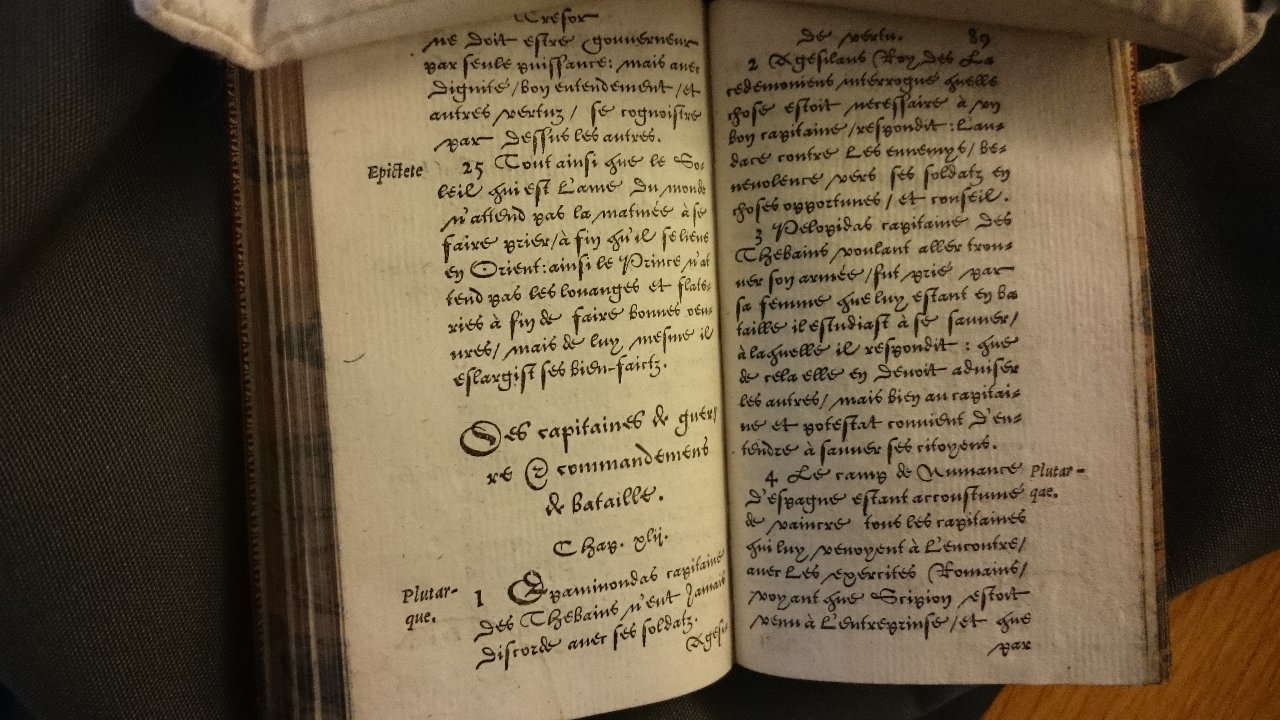 Tresor
ne doit estre gouverneur
par seule puissance: mais avec
dignité/ bon entendement/ et
autres vertuz/ se cognoistre
par dessus les autres.
Epictete
25 Tout ainsi que le So-
leil qui est l'ame du monde
n'attend pas la matinée à se
faire prier/ à fin qu'il se lieve
en Orient: ainsi le Prince n'at
tend pas les louanges et flate-
ries à fin de faire bonnes oeu-
vres/ mais de luy mesme il
eslargist ses bien-faictz.
Des capitaines de guer-
re & commandemens
de bataille.
Chap. xlij.
Plutar-
que.
1 Epaminondas capitaine
des Thebains n'eut jamais
discorde avec ses soldatz.
Agesi-
de vertu. 89
2 Agesilaus Roy des La
cedemoniens interrogué quelle
chose estoit necessaire à un
bon capitaine/ respondit: L'au-
dace contre les ennemys/ be-
nevolence vers ses soldatz en
choses opportunes/ et conseil.
3 Pelopidas capitaine des
Thebains voulant aller trou-
ver son armée/ fut prié par
sa femme que luy estant en ba
taille il estudiast à se sauver/
à laquelle il respondit: que
de cela elle en devoit adviser
les autres/ mais bien au capitai-
ne et potestat convient d'en-
tendre à sauver ses citoyens.
4 Le camp de Numance
Plutar-
que.
d'espagne estant accoustumé
de vaincre tous les capitaines
qui luy venoyent à l'encontre/
avec les exercites Romains/
voyant que Scipion estoit
venu à l'entreprinse/ et que
par